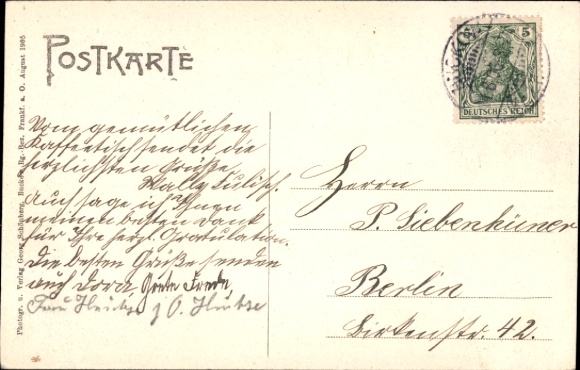 POSTKARTE
5
DEUTSCHES REICH
Photogr. u. Verlag Georg Schönberg, Beckow Rg.-Bez. Frankf. a. O. August 1905
Vom gemütlichen
Kaffeetisch sendet die
herzlichsten Grüße
Wally Tulisch.
Auch sage ich Ihnen
meinen besten Dank
für Ihre herzl. Gratulation.
Die besten Grüße senden
auch Dora Grete Frede,
Frau
Herrn
P. Siebenhüner
Berlin
Birkenstr. 42.